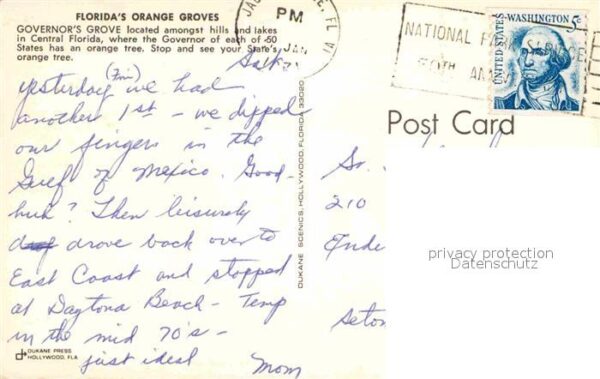 FLORIDA'S ORANGE GROVES
GOVERNOR'S GROVE located amongst hills and lakes
in Central Florida, where the Governor of each of 50
States has an orange tree. Stop and see your State's
orange tree.
Sat.
yesterday (Fri) we had
another 1st - we dipped
our fingers in the
Gulf of Mexico. Good-
huh? Then leisurely
drove back over to
East Coast and stopped
at Daytona Beach - Temp
in the mid 70's -
just ideal
Mom
DUKANE PRESS
HOLLYWOOD, FLA
DUKANE SCENICS, HOLLYWOOD, FLORIDA 33020
PM
JAN
NATIONAL PARK SERVICE
50TH ANNIV
UNITED STATES
WASHINGTON 5c
Post Card
210
privacy protection
Datenschutz